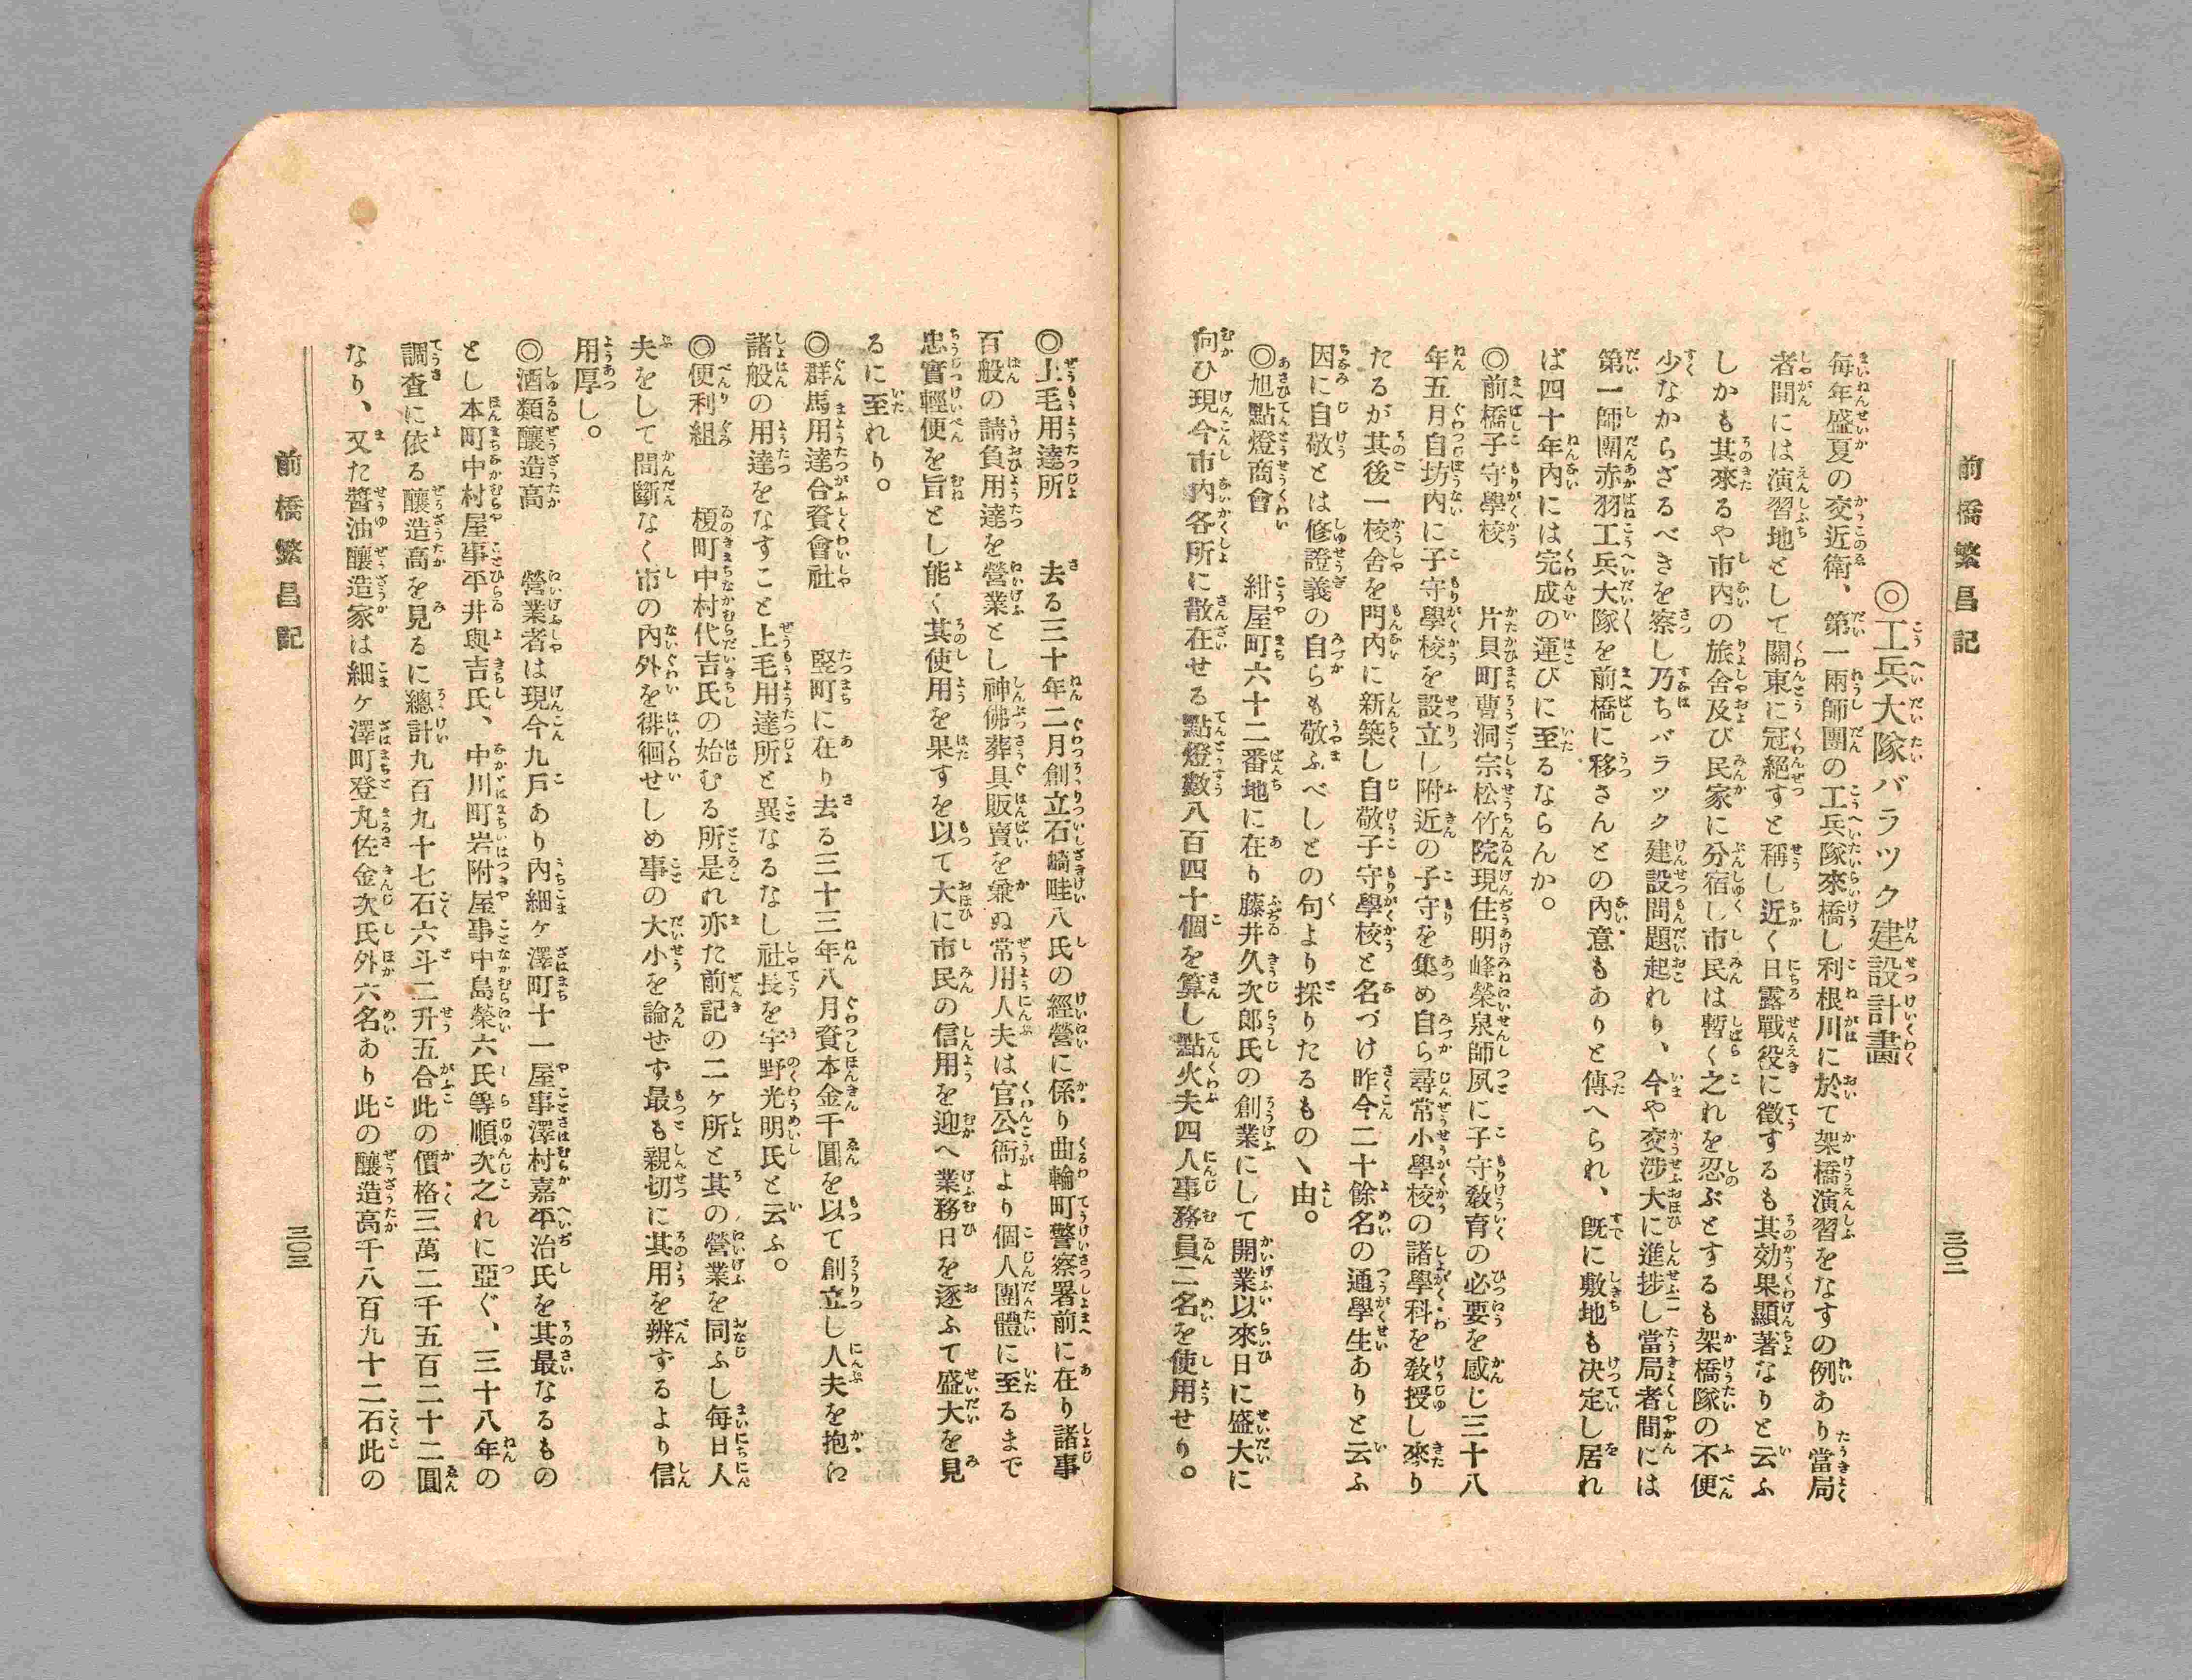 前橋繁昌記
三〇二
◎工兵大隊バラック建設計畫
每年盛夏の交近衛、第一兩師團の工兵隊來橋し利根川に於て架橋演習をなすの例あり當局
者間には演習地として關東に冠絕すと稱し近く日露戰役に徵するも其効果顯著なりと云ふ
しかも其來るや市內の旅舍及び民家に分宿し市民は暫く之れを忍ぶとするも架橋隊の不便
少なからざるべきを察し乃ちバラック建設問題起れり、今や交涉大に進捗し當局者間には
第一師團赤羽工兵大隊を前橋に移さんとの內意もありと傳へられ、既に敷地も决定し居れ
ば四十年內には完成の運びに至るならんか。
◎前橋子守學校　片貝町曹洞宗松竹院現住明峰榮泉師夙に子守敎育の必要を感じ三十八
年五月自坊內に子守學校を設立し附近の子守を集め自ら尋常小學校の諸學科を敎授し來り
たるが其後一校舍を門內に新築し自敬子守學校と名づけ昨今二十餘名の通學生ありと云ふ
因に自敬とは修證義の自らも敬ふべしとの句より採りたるものゝ由。
◎旭點燈商會　紺屋町六十二番地に在り藤井久次郎氏の創業にして開業以來日に盛大に
向ひ現今市內各所に散在せる點燈數八百四十個を算し點火夫四人事務員二名を使用せり。
◎上毛用達所　去る三十年二月創立石崎畦八氏の經營に係り曲輪町警察署前に在り諸事
百般の請負用達を營業とし神佛葬具販賣を兼ぬ常用人夫は官公衙より個人團體に至るまで
忠實輕便を旨とし能く其使用を果すを以て大に市民の信用を迎へ業務日を逐ふて盛大を見
るに至れり。
◎群馬用達合資會社　堅町に在り去る三十三年八月資本金千圓を以て創立し人夫を抱ゐ
諸般の用達をなすこと上毛用達所と異なるなし社長を宇野光明氏と云ふ。
◎便利組　榎町中村代吉氏の始むる所是れ亦た前記の二ヶ所と其の營業を同ふし每日人
夫をして間斷なく市の內外を徘徊せしめ事の大小を論ぜず最も親切に其用を辨ずるより信
用厚し。
◎酒類釀造高　營業者は現今九戶あり內細ヶ澤町十一屋事澤村嘉平治氏を其最なるもの
とし本町中村屋事平井與吉氏、中川町岩附屋事中島榮六氏等順次之れに亞ぐ、三十八年の
調査に依る釀造高を見るに總計九百九十七石六斗二升五合此の價格三萬二千五百二十二圓
なり、又た醬油釀造家は細ヶ澤町登丸佐金次氏外六名あり此の釀造高千八百九十二石此の
前橋繁昌記
三〇三